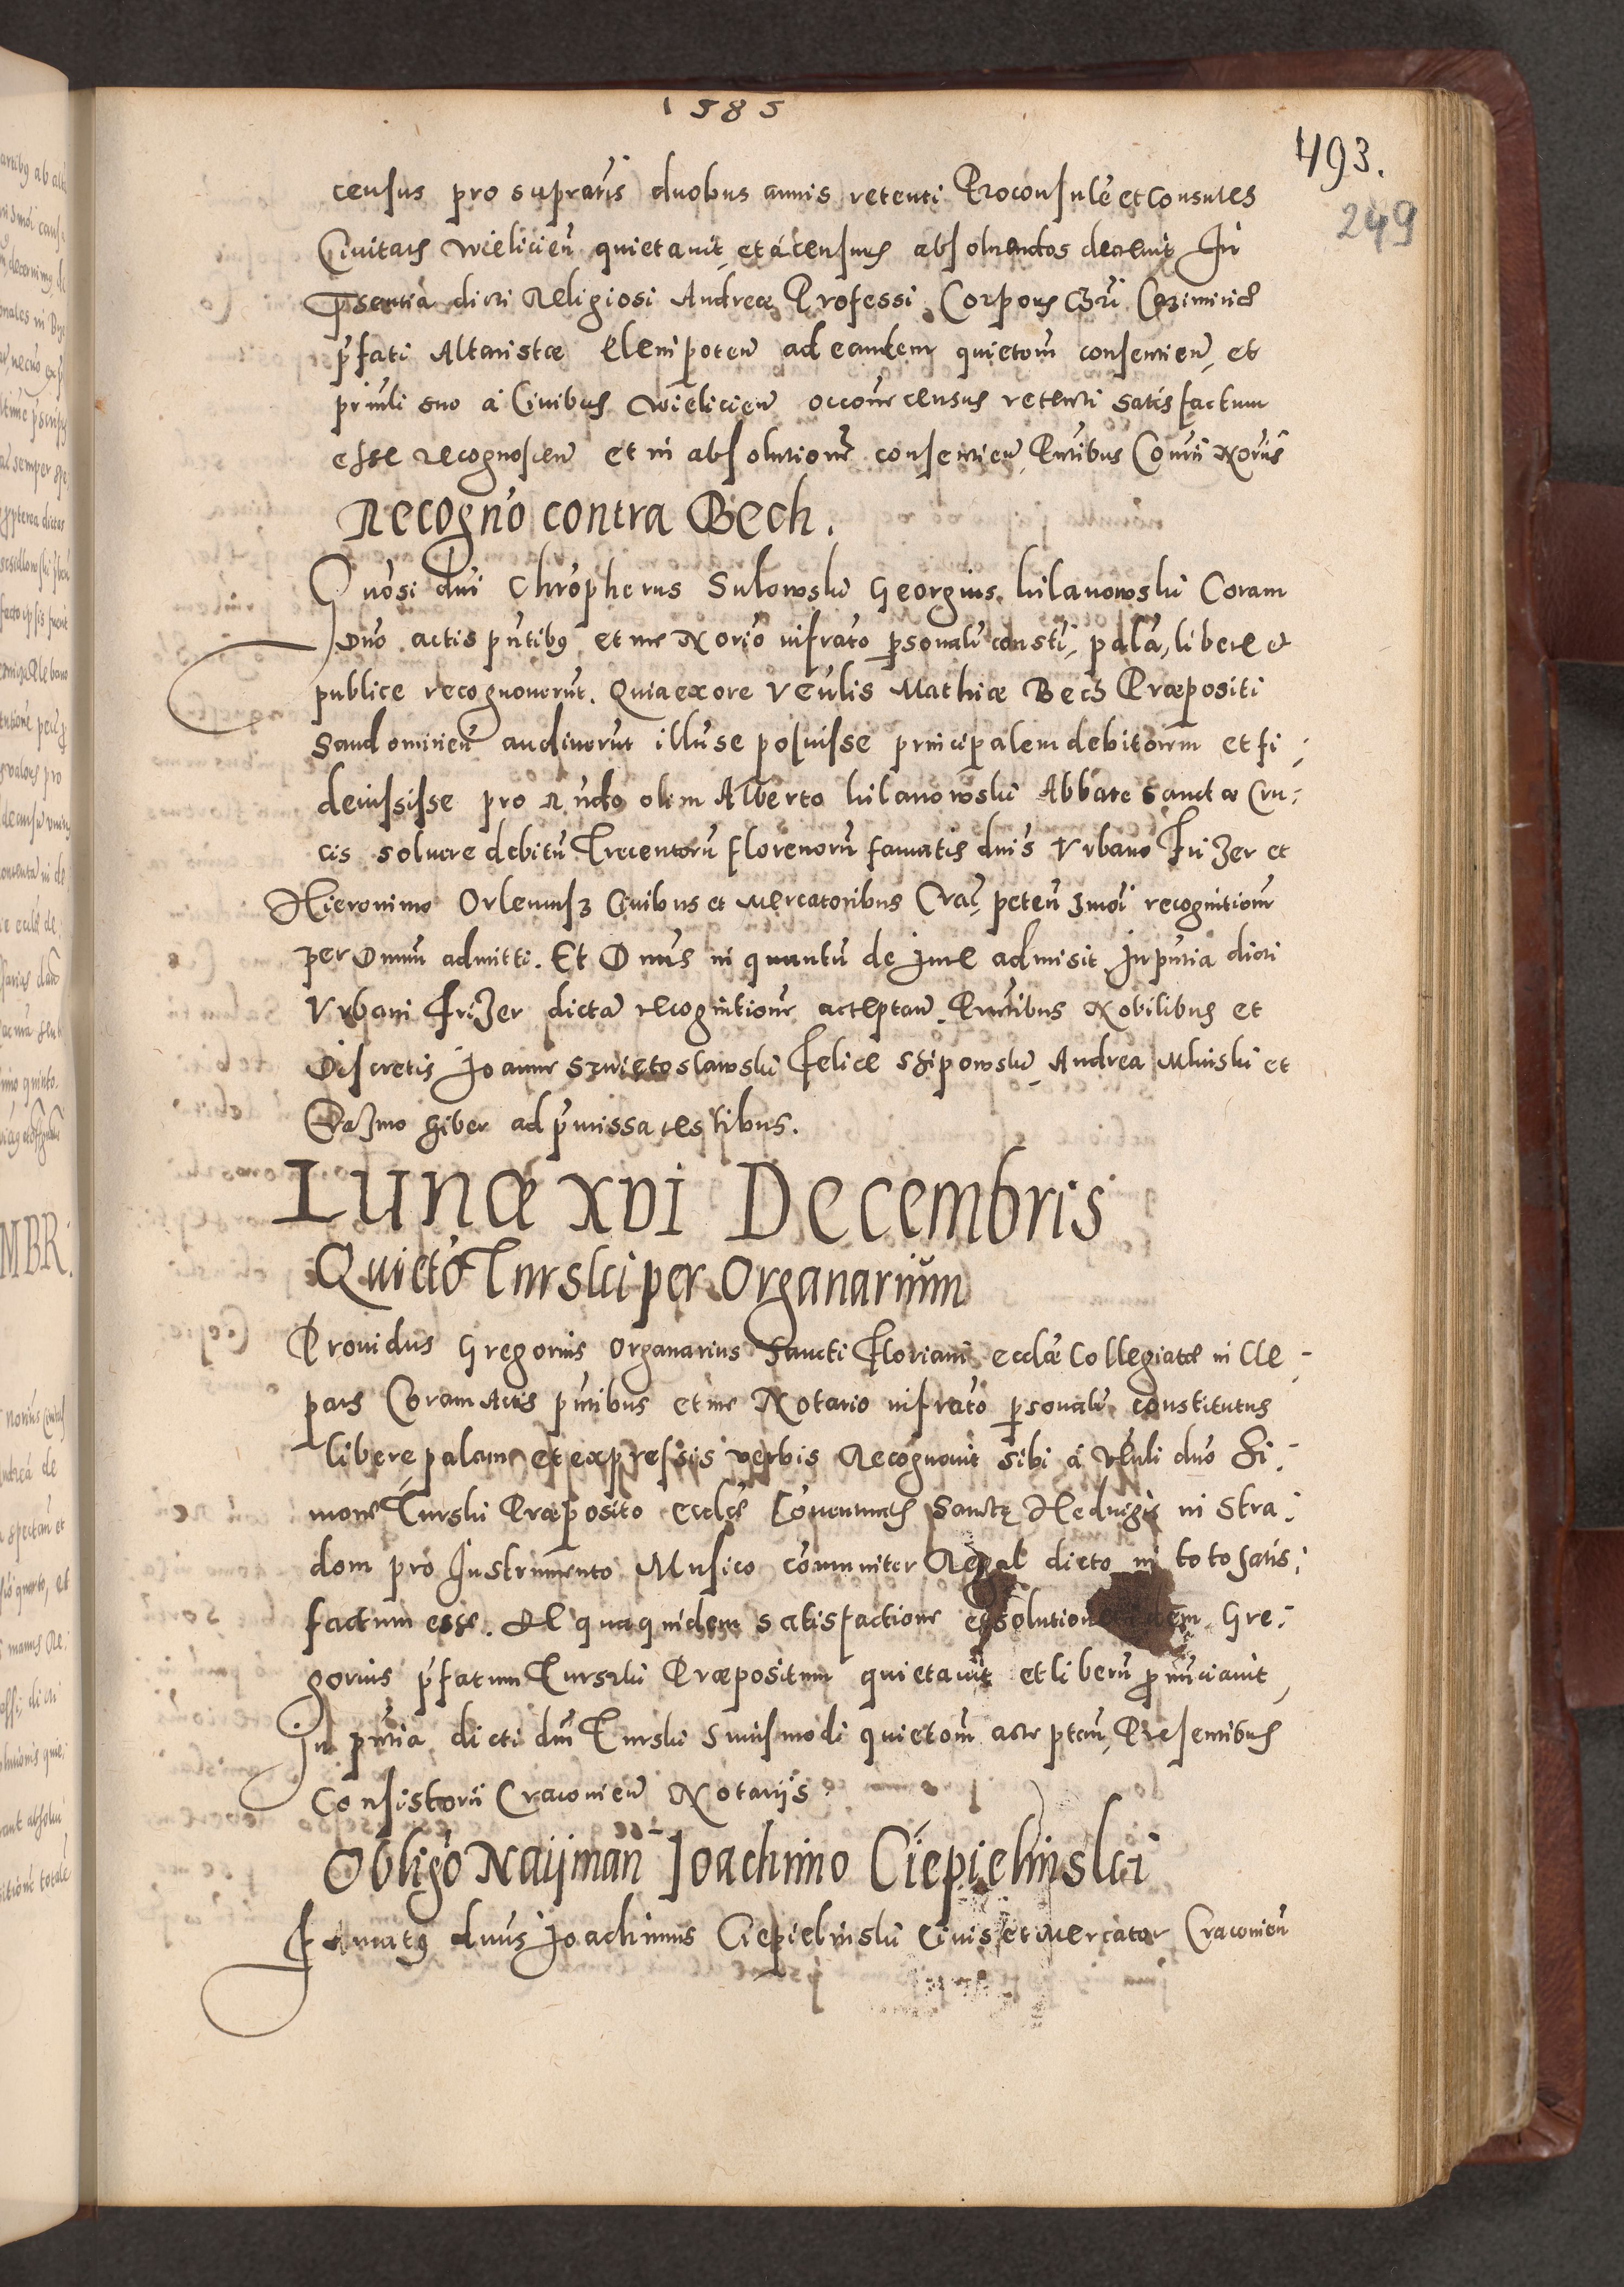 1585
493.
249
census pro supratis duobus annis retenti Proconsule et Consules
Ciuitatis Wielicien quietauit et a censuris absoluendos decreuit In
pñsentia dicti Religiosi Andreæ Professi Corporis Xri Casimiriæ
p̃fati Altaristæ plenipoten ad eandem quietom̃ consentien, et
prinl̃i suo a Ciuibus Wielicien occone census retenti satisfactum
esse recognoscen et in absolutionẽ consentien, Pñtibus Consrii Norijs
Recogno contra Bech.
Gnosi dni Chrõpherus Sulowski Georgius Kilanowski Coram
Dno actis pñtibꝫ et me Norio infrato psonalr̃ consti, palã, libere et
publice recognouerũt. Quia ex ore Veñlis Mathiæ Bech Præpositi
Sandomirien audiuerũt illũ se posuisse principalem debitorem et fi-
deiussisse pro Rñdo olim Alberto Kilanowski Abbate Sanctæ Cru-
cis soluere debitũ Trecentorũ florenorũ famatis dnis Vrbano Frizer et
Hieronimo Orlemusz Ciuibus et Mercatoribus Crac̃, peten hmõi recognitionẽ
per Dnum admitti. Et Dnus in quantũ de Jure admisit In pñtia dicti
Vrbani Frizer dictã recognitionẽ acceptan. Pñtibus Nobilibus et
Discretis Joanne Szwietoslawski Felice Szipowski, Andrea Mlinski et
Erazmo Giber ad p̃missa testibus.
Lunæ XVI Decembris
Quieto Turski per Organarium
Prouidus Gregorius Organarius Sancti Floriani ecclæ Collegiatæ in Cle-
pars Coram Actis pñtibus et me Notario infrato psonalr̃ constitutus
libere palam et expressis verbis Recognouit sibi a Vñli dño Si-
mone Turski Præposito ecclæ Conuentualis Sanctę Hedvigis in Stra-
dom pro Instrumento Musico cõmuniter Regal dicto in toto satis-
factum esse. De qua quidem satisfactione et solutione idem Gre-
gorius p̃fatum Turski Præpositum quietauit et liberũ pnũciauit,
In pñtia dicti dni Turski huiusmodi quietom̃ acceptan, Presentibus
Consistorii Cracouien Notarijs
Obligo Naijman Joachimo Ciepielinski
Famatꝫ dnus Joachimus Ciepielinski Ciuis et Mercator Cracouien